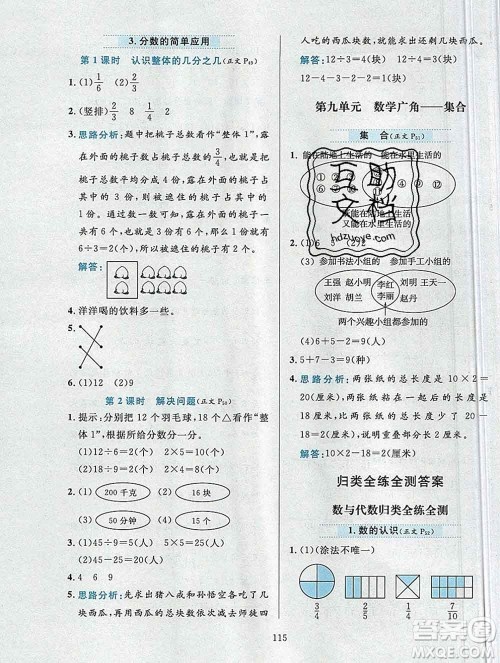 3.分数的简单应用
第1课时 认识整体的几分之几(正文P49)
1.(1)1/6 (2)1/3
2.(竖排) 1/2 3/4 4/8 2/3
3.思路分析:题中把桃子总数看作“整体1”,露
在外面的桃子数占桃子总数的3/4,说明把桃
子总数平均分成4份,露在外面的桃子数占
其中的3份,被遮住的桃子数占其中的
1份。露在外面的3份桃子数一共有6个,
6÷3=2(个),所以被遮住的桃子有2个。
解答:
4.洋洋喝的饮料多一些。
5.
6.(1)12 (2)9
第2课时 解决问题(正文P50)
1.提示:分别把12个羽毛球,18个△看作“整
体1”,然后平均分。
(1)12÷6=2(个) 2×5=10(个)
(2)18÷9=2(个) 2×4=8(个)
2.(1) 200千克 (2) 16块
(3) 50分钟 (4) 15只
3.(1)45÷9=5(人) 5×5=25(人)
(2)45÷9=5(人) 5×4=20(人)
4. 4 6 9
5.思路分析:先求出猪八戒和孙悟空各吃了几
块西瓜,再用西瓜的总块数依次减去师徒四
人吃的西瓜块数,即可求出还剩几块西瓜。
解答:12÷4=3(块) 12÷3=4(块)
12-3-4-1-2=2(块)
第九单元 数学广角——集合
集 合(正文P51)
1.能在陆地上生活的 能在水里生活的
互助
文档
hdzuoye.com
2.(1)6 5 (2)2
(3)参加书法小组的 参加手工小组的
王强 赵小明
刘洋 胡兰
李红
李丽
刘明 王天一
赵丹
两个兴趣小组都参加的
(4)6+5-2=9(人)
3.5+7-3=9(种)
4.思路分析:两张纸的总长度是10×2=
20(厘米),两张纸粘在一起的总长度是
18厘米,粘贴部分的长度是20-18=
2(厘米)。
解答:10×2-18=2(厘米)
归类全练全测答案
数与代数归类全练全测
1.数的认识(正文P52)
1.(1)(涂法不唯一)
3/4 2/5 1/4 7/10
115
答案圈
MXQE.COM